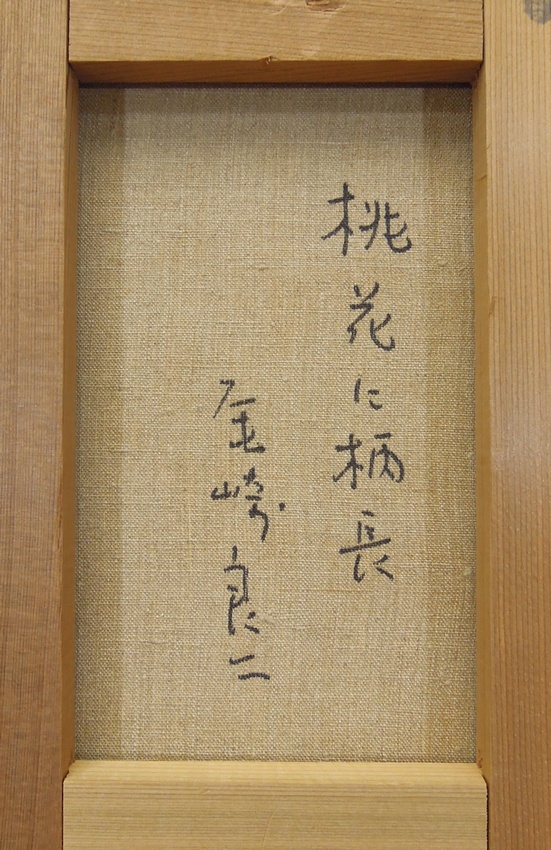 桃花に柄長
尾崎良二